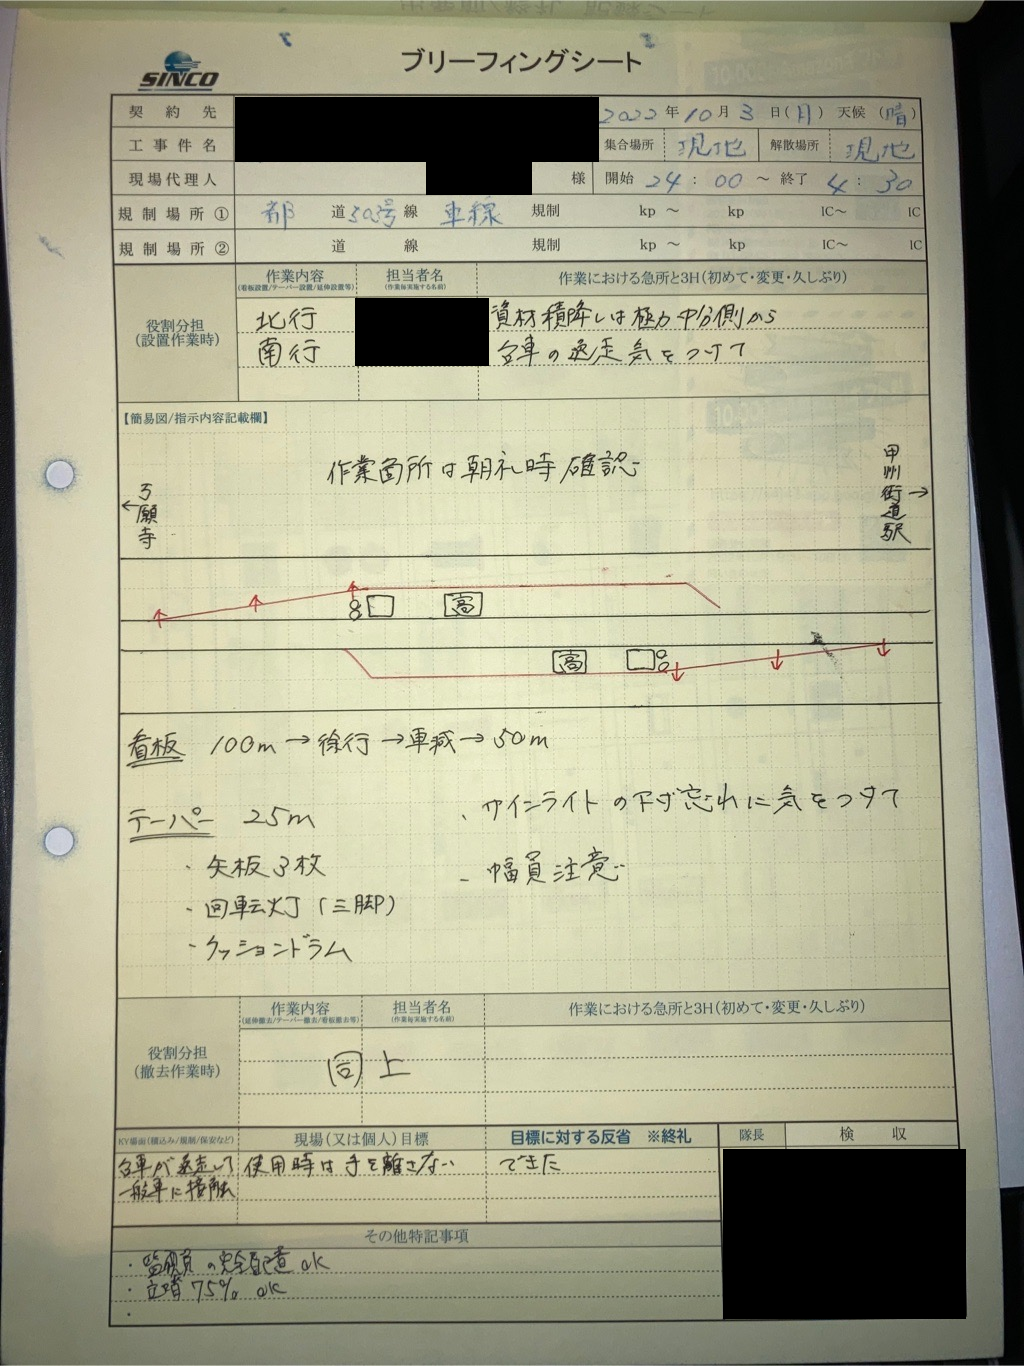 SINCO
ブリーフィングシート
契約先
2022年10月3日(月) 天候(晴)
工事件名
集合場所 現地 解散場所 現地
現場代理人 様 開始 24:00～終了 4:30
規制場所① 都 道503号線 車線 規制 kp～ kp IC～ IC
規制場所② 道 線 規制 kp～ kp IC～ IC
役割分担
(設置作業時)
作業内容
(看板設置/テーパー設置/延伸設置等)
担当者名
(作業毎実施する名前)
作業における急所と3H(初めて・変更・久しぶり)
北行 資材積降しは極力中分側から
南行 台車の逸走気をつけて
【簡易図/指示内容記載欄】
作業箇所は朝礼時確認
←
願寺
甲州街道駅→
高
高
看板 100m→徐行→車減→50m
テーパー 25m
・矢板3枚
・回転灯(三脚)
・クッションドラム
・サインライトの下げ忘れに気をつけて
・幅員注意
役割分担
(撤去作業時)
作業内容
(延伸撤去/テーパー撤去/看板撤去等)
担当者名
(作業毎実施する名前)
作業における急所と3H(初めて・変更・久しぶり)
同上
KY場面(積込み/規制/保安など)
現場(又は個人)目標
目標に対する反省 ※終礼
隊長
検収
台車が逸走して
一般車に接触
使用時は手を離さない
できた
その他特記事項
・監視員の完全配置OK
・立哨75% OK
・